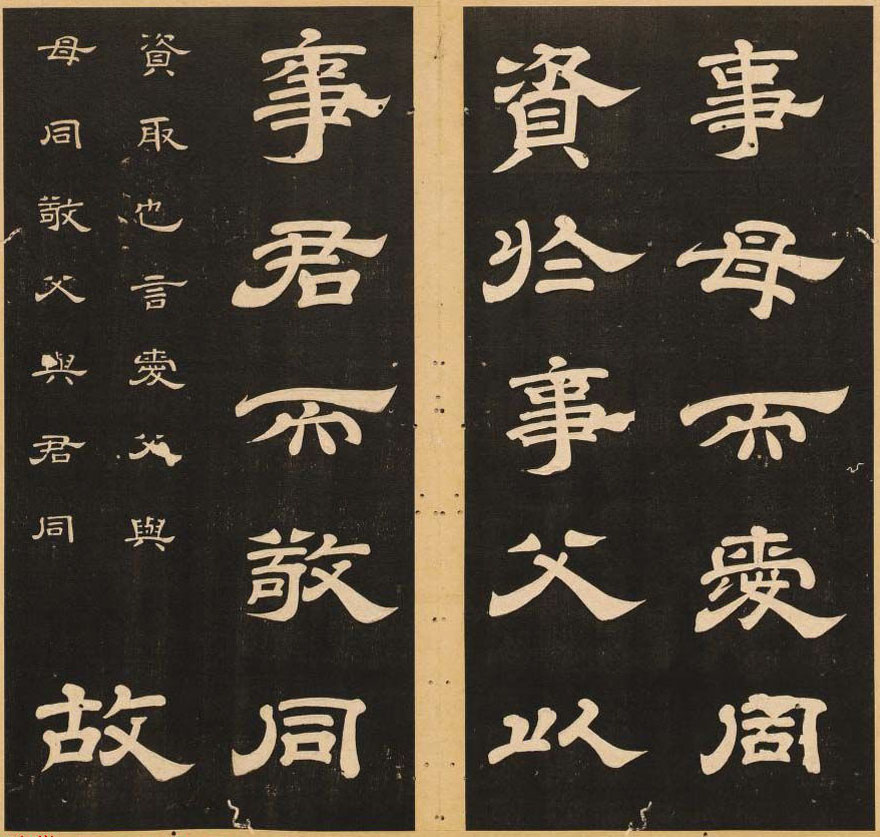 事母而愛同
資於事父以
事君而敬同
資取也言愛父與
母同敬父與君同
故